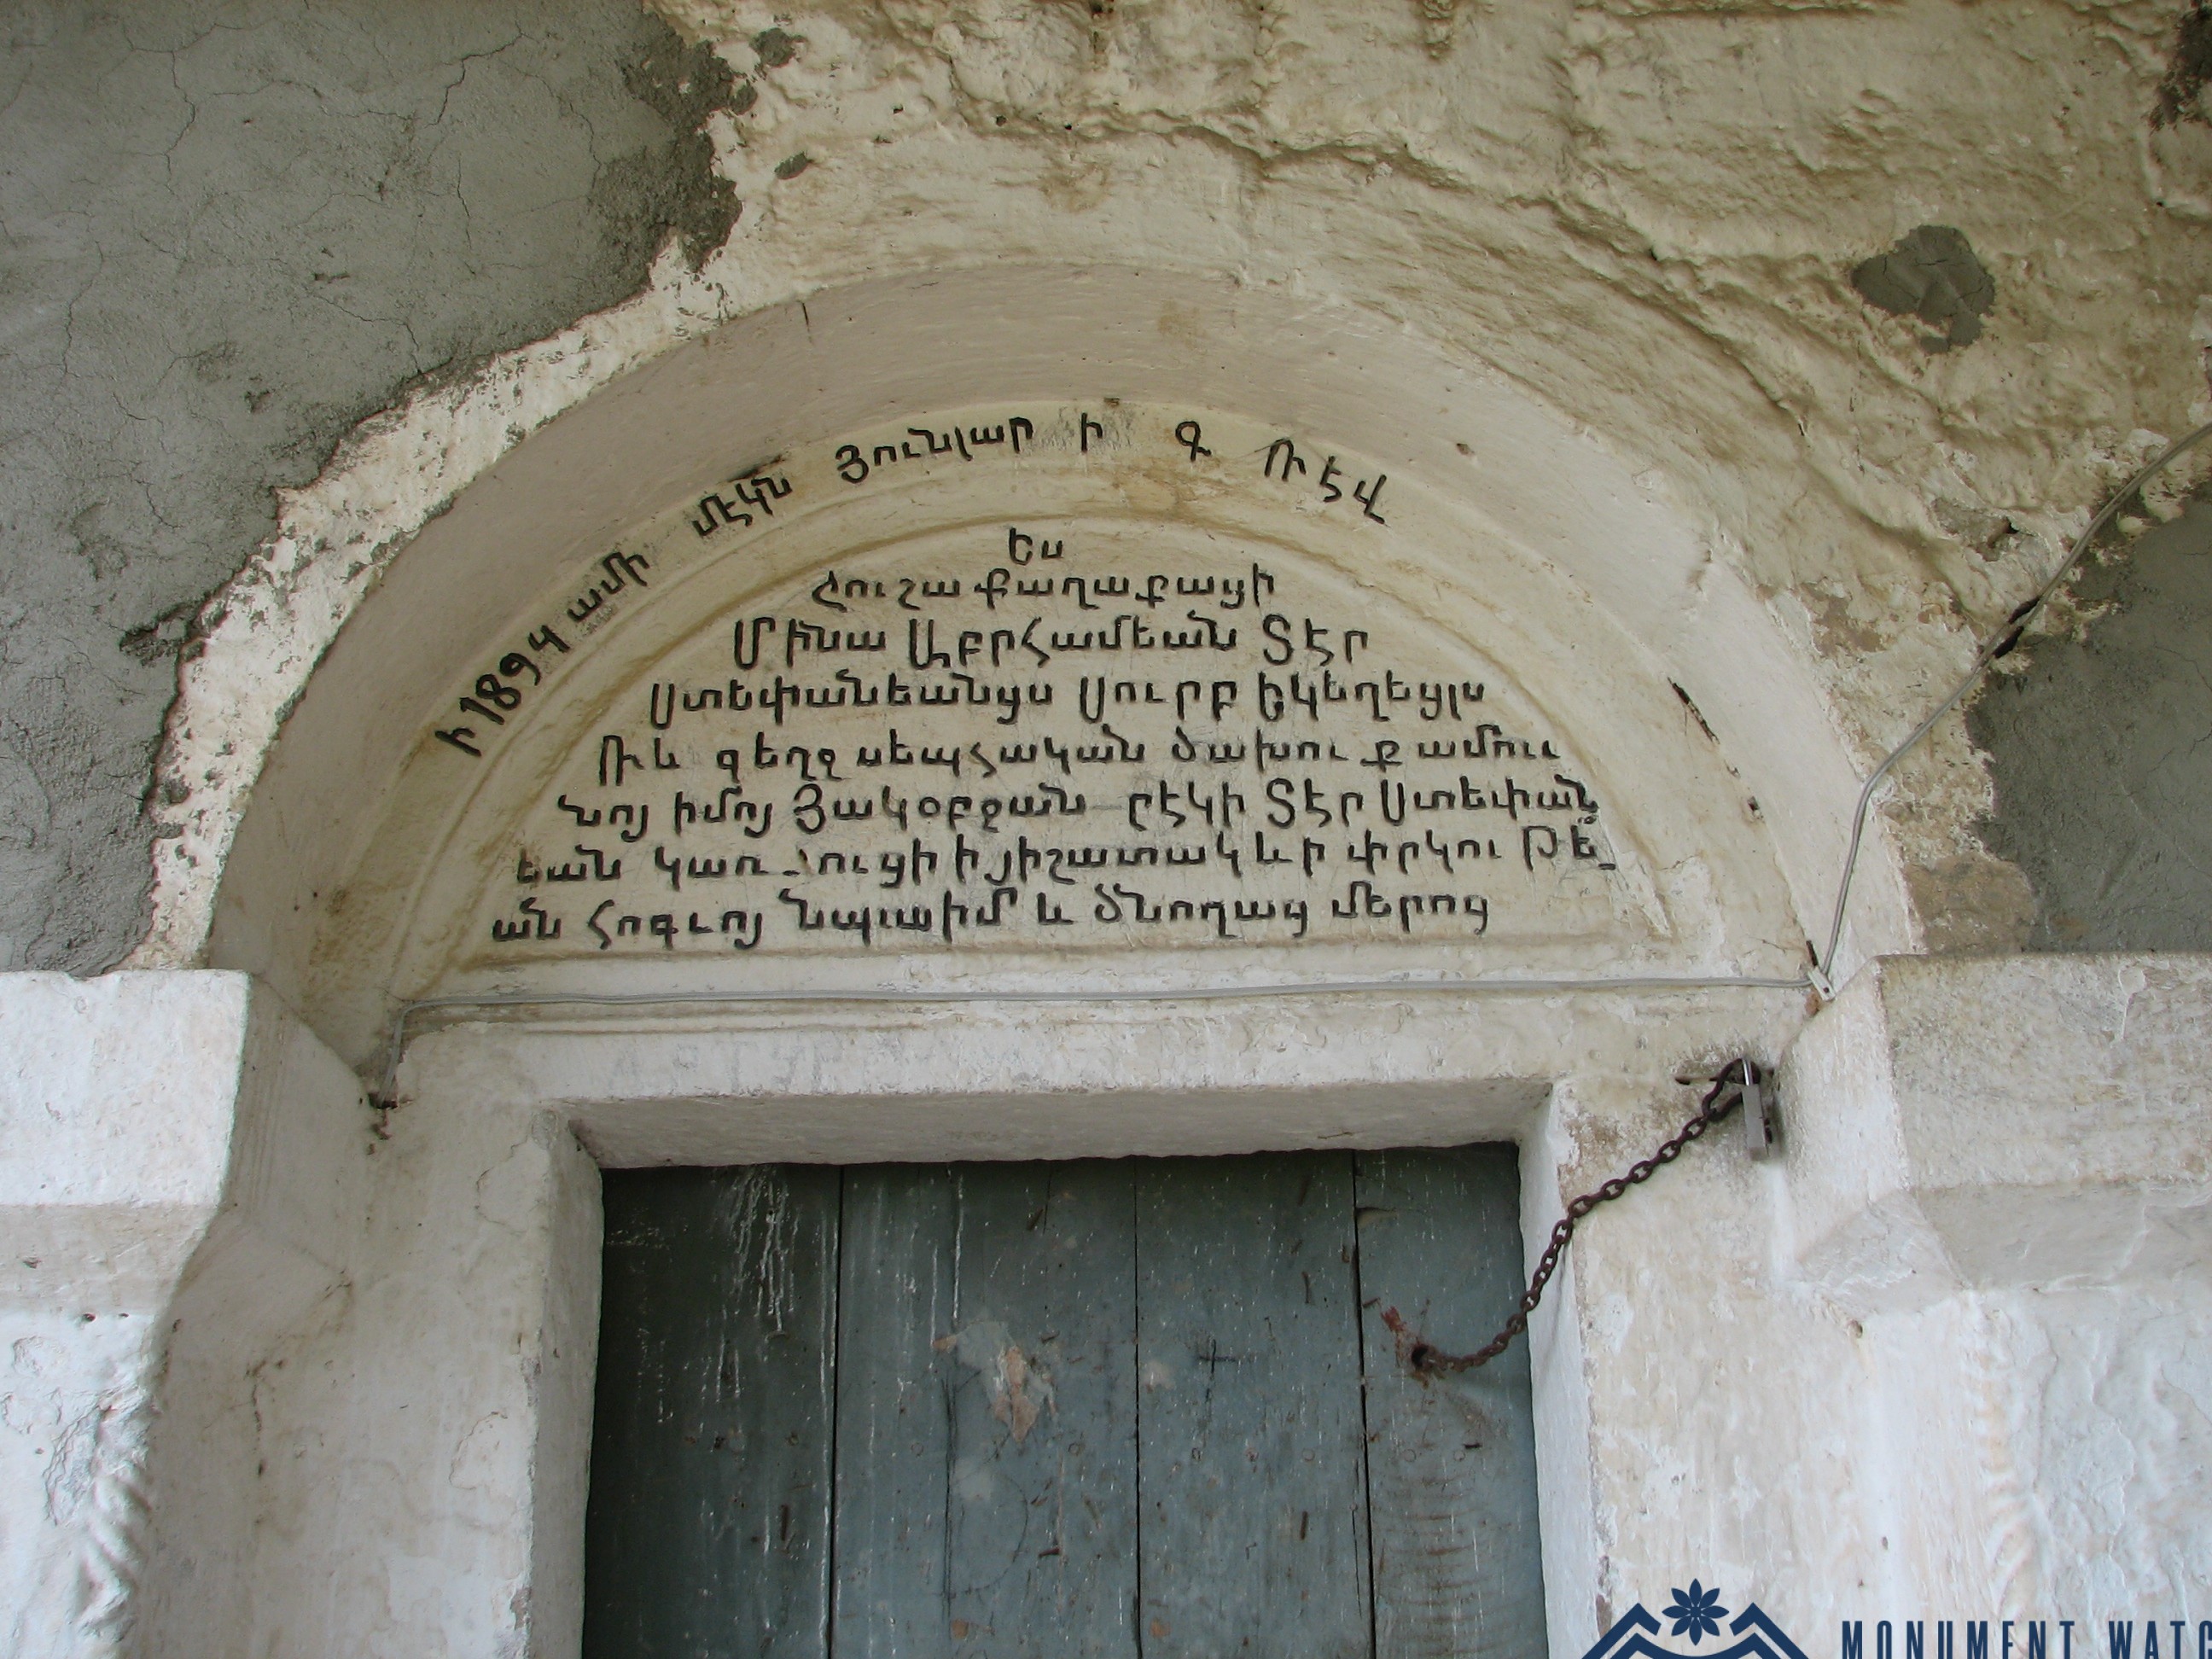 Ի 1894 ամի մէկն Յունւար ի Գ Ռէվ
Ես
Հուշաքաղաքացի
Մինա Աբրհամեան Տէր
Ստեփանեանցս Սուրբ Եկեղեցյս
Ռև գեղջ սեպհական ծախուք ամուս
նոյ իմոյ Յակօբջան բէկի Տէր Ստեփան
եան կառուցի ի յիշատակ և ի փրկութե
ան հոգւոյ նպաիմ և ծնողաց մերոց
MONUMENT WATC